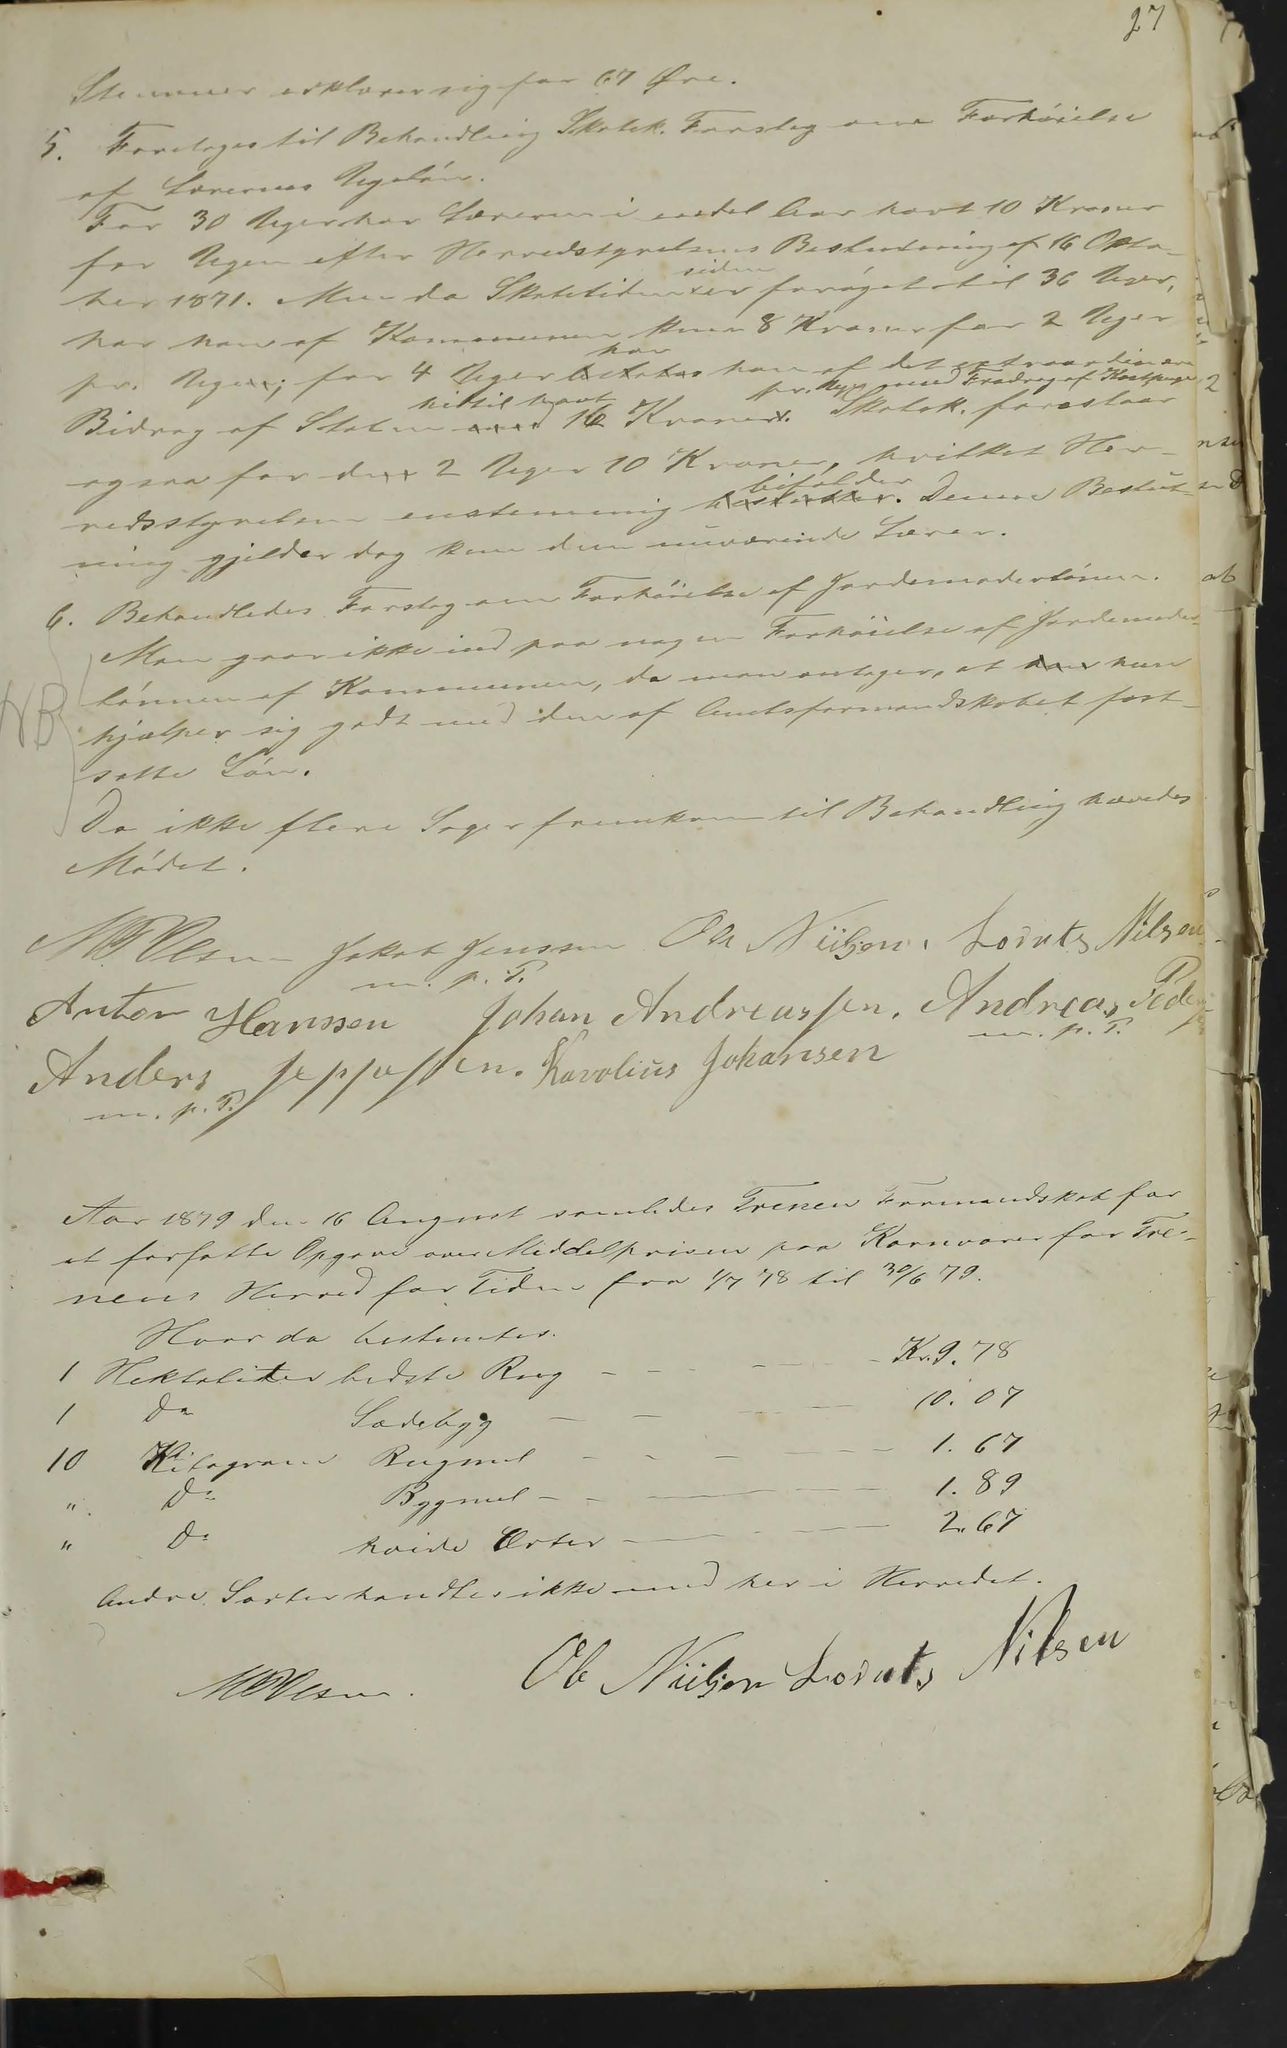 27
Stemmer erklærer sig for 67 Øre.
5. Foretoges til Behandling Skolek. Forslag om Forhøielse
af Lærernes Ugeløn.
For 30 Uger har Læreren i endel Aar havt 10 Kroner
for Ugen efter Herredstyrelsens Beslutning af 16 Okto-
ber 1871. Men da Skoletiden siden er forøget til 36 Uger,
har han af Kommunen kun 8 Kroner for 2 Uger
pr. Uge; for 4 Uger har han af det extraordinære
Bidrag af Staten hidtil havt 16 Kroner pr. Uge med Fradrag af Kostpenge. Skolek. foreslaar
ogsaa for de 2 Uger 10 Kroner, hvilket Her-
redsstyrelsen enstemmig bifalder. Denne Beslut-
ning gjelder dog kun den nuværende Lærer.
6. Behandledes Forslag om Forhøielse af Jordemoderlønnen.
NB
Man gaar ikke ind paa nogen Forhøielse af Jordemoder-
lønnen af Kommunen, da man antager, at hun
hjælper sig godt med den af Amtsformandskabet fast-
satte Løn.
Da ikke flere Sager fremkom til Behandling hævedes
Mødet.
Jakob Jenssen Ole Nilsen. Lorents Nilsen
m. p. P.
Anton Hanssen Johan Andreassen. Andreas Peder
m. p. P.
Anders Jeppessen. Karolius Johansen
m. p. P.
Aar 1879 den 16 August samledes Trenen Formandskab for
at forfatte Opgave over Middelprisen paa Kornvarer for Tre-
nens Herred for Tiden fra 1/7 78 til 30/6 79.
Hvor da bestemtes.
1 Hektoliter bedste Rug - - - - Kr. 9. 78
1 Do Sædebyg - - - - 10. 07
10 Kilogram Rugmel - - - - 1. 67
" Do Bygmel - - - - 1. 89
" Do hvide Erter - - - - 2. 67
Andre Sorter handles ikke med her i Herredet.
Ole Nilsen Lorents Nilsen